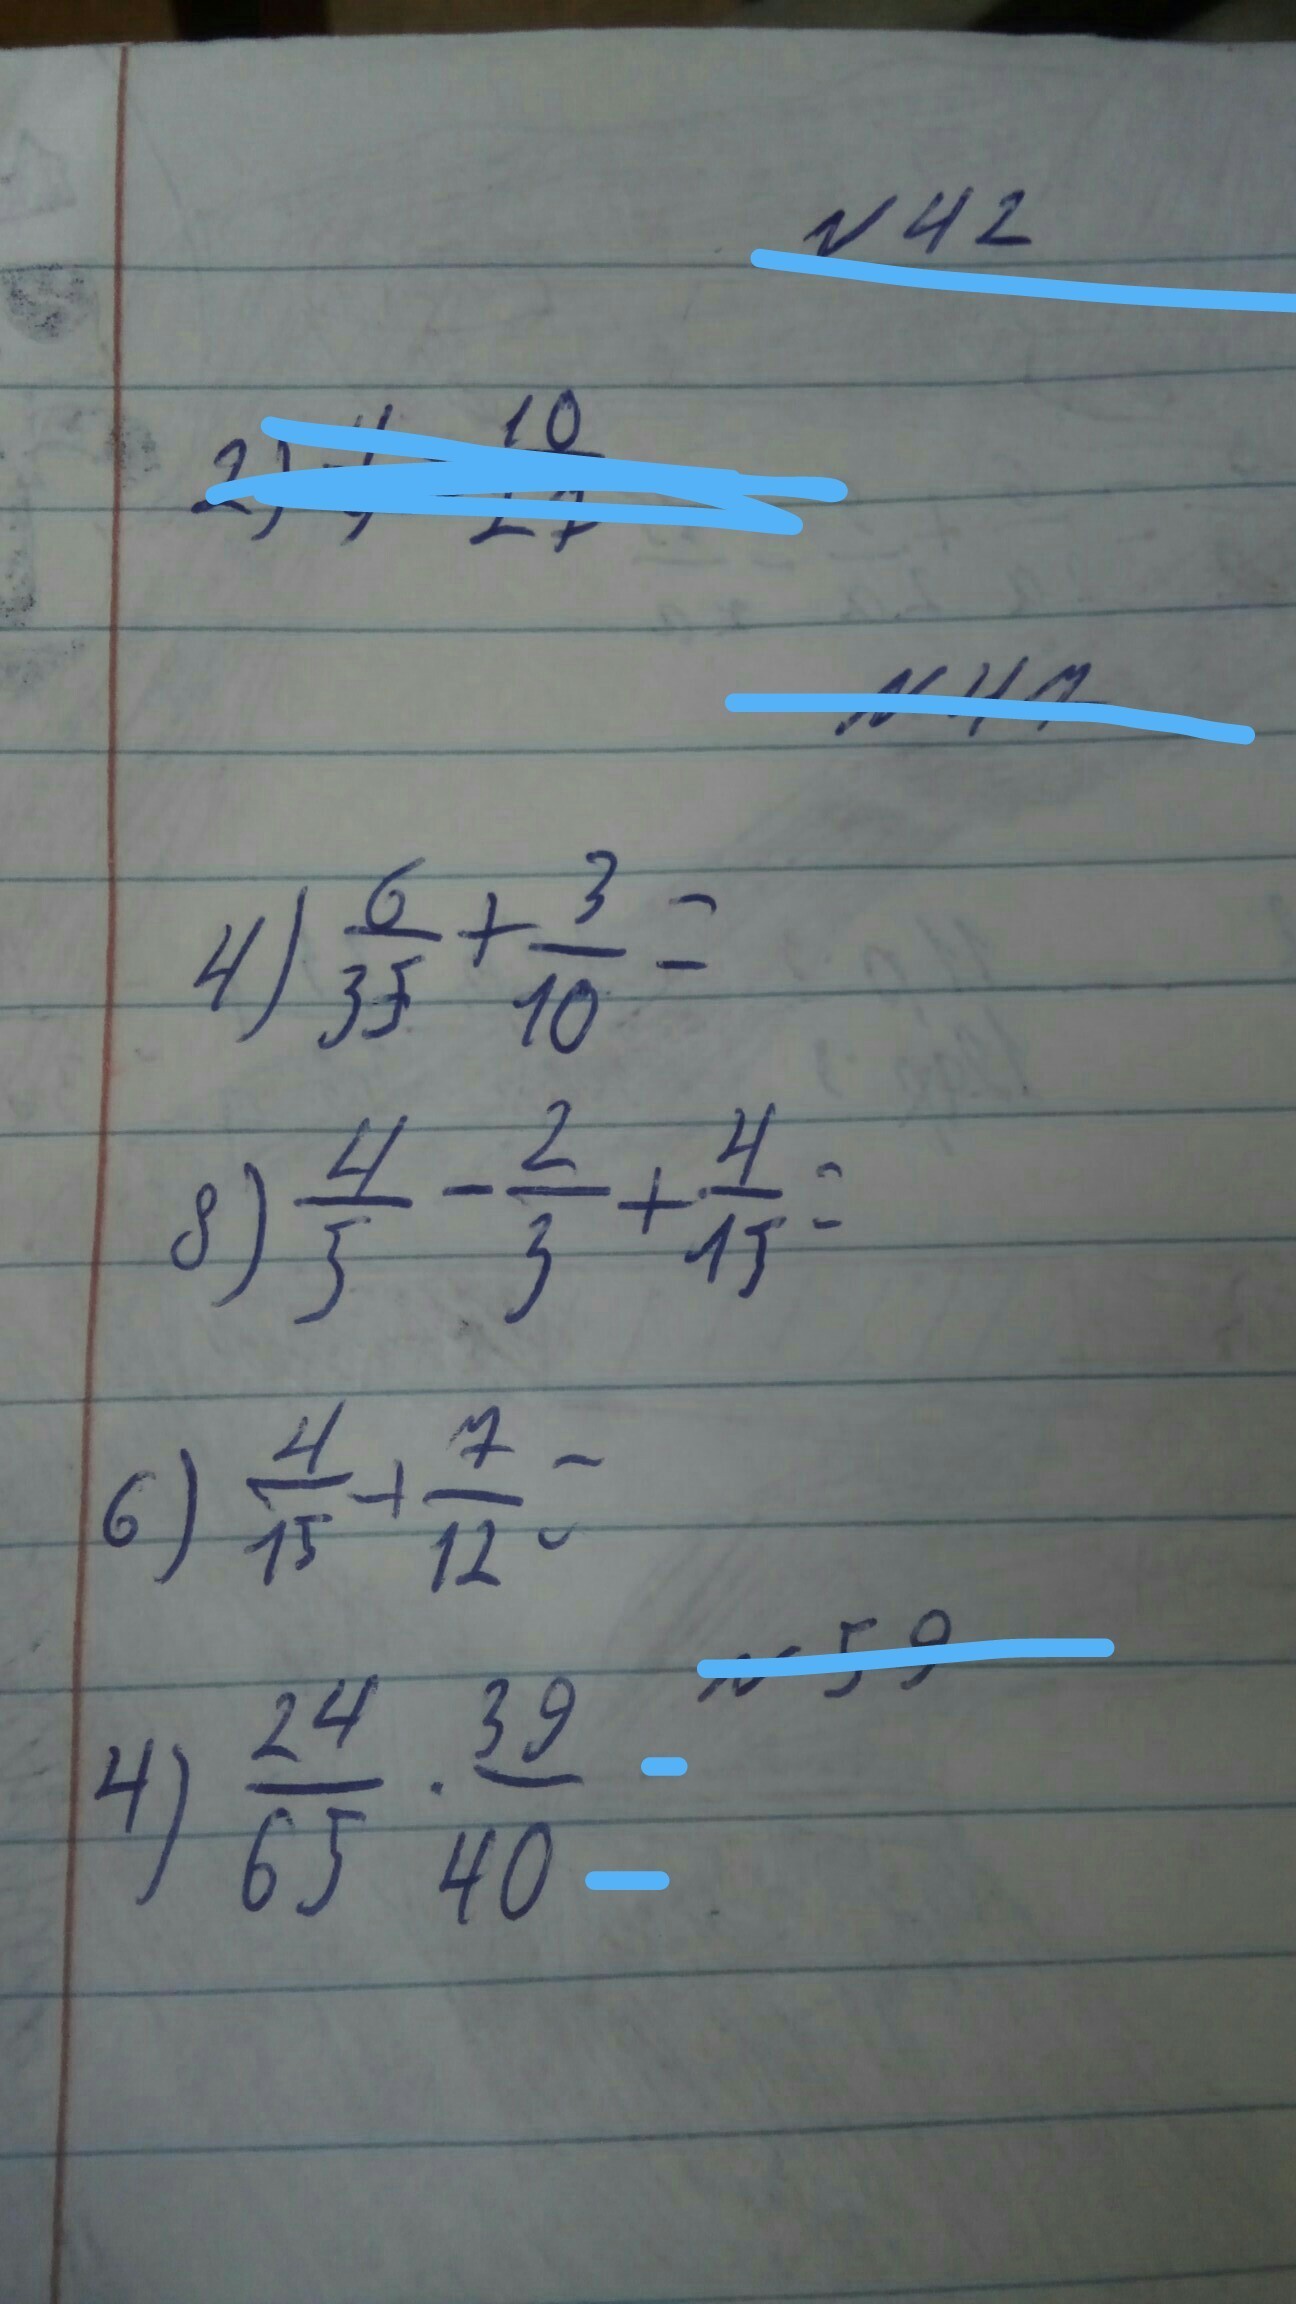 N 42
2) 10
N 47
4) 6/35 + 3/10 =
8) 4/5 - 2/3 + 4/15 =
6) 4/15 + 7/12 =
N 59
4) 24/65 · 39/40 =